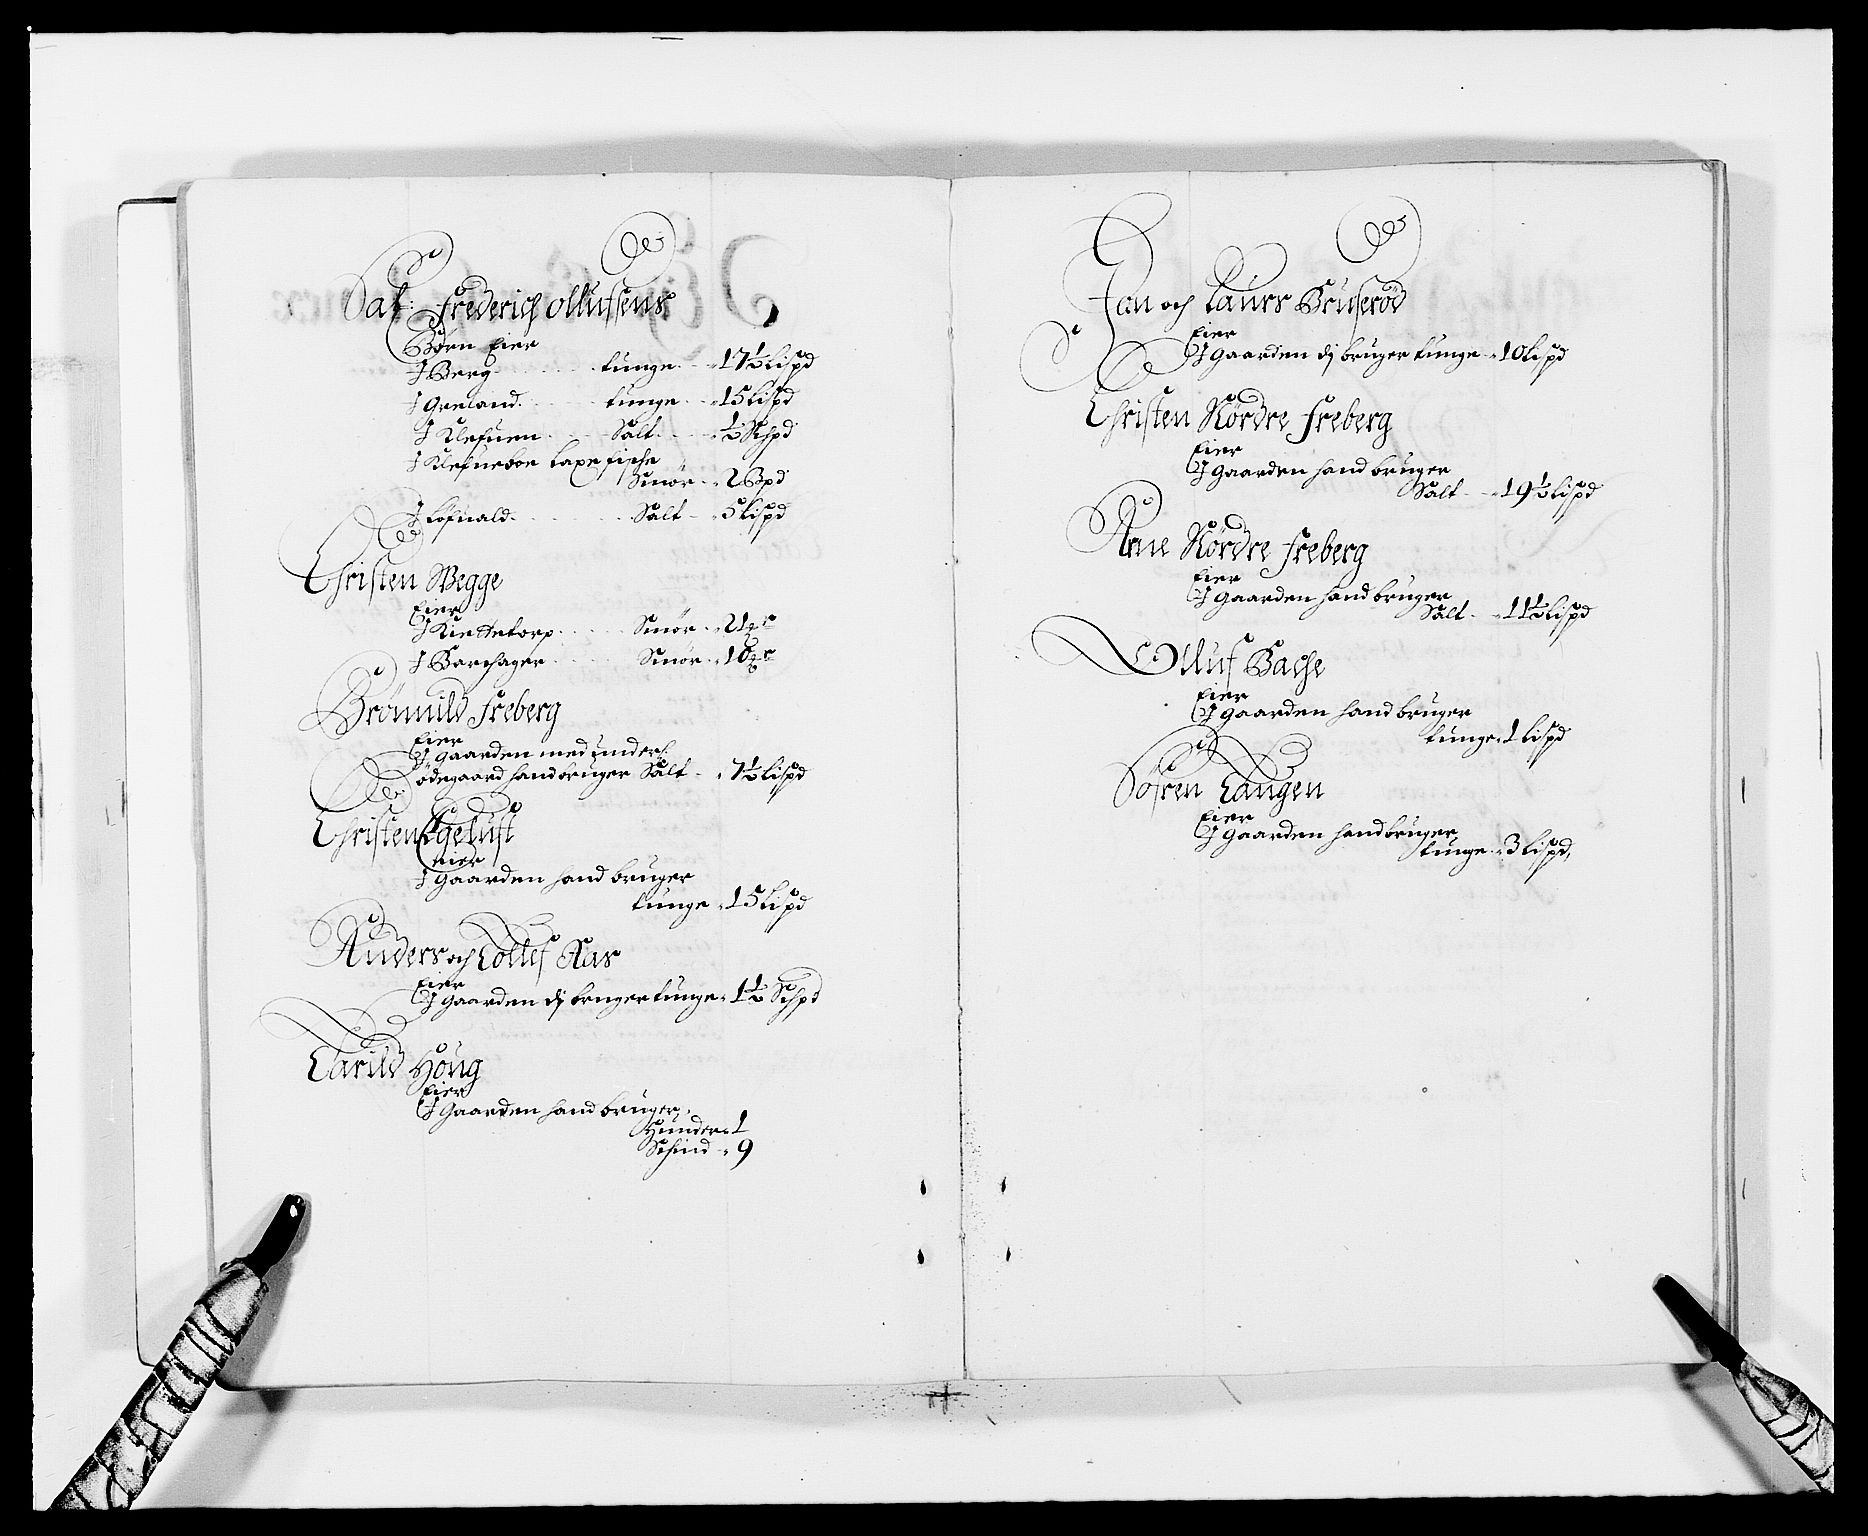 Sal: Frederich Ollufsens
Børn Eier
J Berg tunge 17½ lispd
J Greland tunge 15 lispd
J Klefuen Salt ½ Schpd
J Klefueboe laxefische
Smør 2 Bpd
J Lofuald Salt 5 lispd
Christen Wegge
Eier
J Kiettetorp Smør 21
J Barchager Smør 10
Brömuld Freberg
Eier
J gaarden med underl:
ødegaard hand bruger Salt 7½ lispd
Christen Egelust
eier
J gaarden hand bruger
tunge 15 lispd
Anders och Tollef Aas
Eier
J gaarden dj bruger tunge 1½ Schpd
Tarild Houg
Eier
J gaarden hand bruger,
Hunder 1
Schind 9
Jan och Laurs Bruserød
Eier
J gaarden dj bruger tunge 10 lispd
Christen Nørdre Freberg
Eier
J gaarden hand bruger
Salt 19½ lispd
Arne Nørdre Freberg
Eier
J gaarden hand bruger
Salt 11½ lispd
Olluf Bache
Eier
J gaarden hand bruger
tunge 1 lispd
Søfren Tangen
Eier
J gaarden hand bruger
tunge 3 lispd,